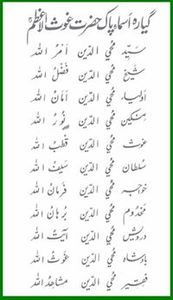 گیارہ اسماء پاک حضرت غوث الاعظمؒ
سید محی الدین امر اللہ
شیخ محی الدین فضل اللہ
اولیاء محی الدین امان اللہ
مسکین محی الدین نور اللہ
غوث محی الدین قطب اللہ
سلطان محی الدین سیف اللہ
خواجہ محی الدین فرمان اللہ
مخدوم محی الدین برہان اللہ
درویش محی الدین آیت اللہ
بادشاہ محی الدین غوث اللہ
فقیر محی الدین مشاہد اللہ